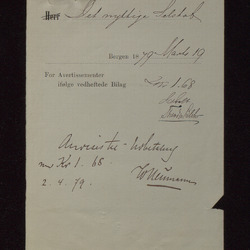 Herr Det nyttige Selskab
Bergen 1879 Marts 19
For Avertissementer
ifølge vedheftede Bilag Kr 1.68
Anvises til Udbetaling
m Kr 1.68.
2.4.79. W Neumann